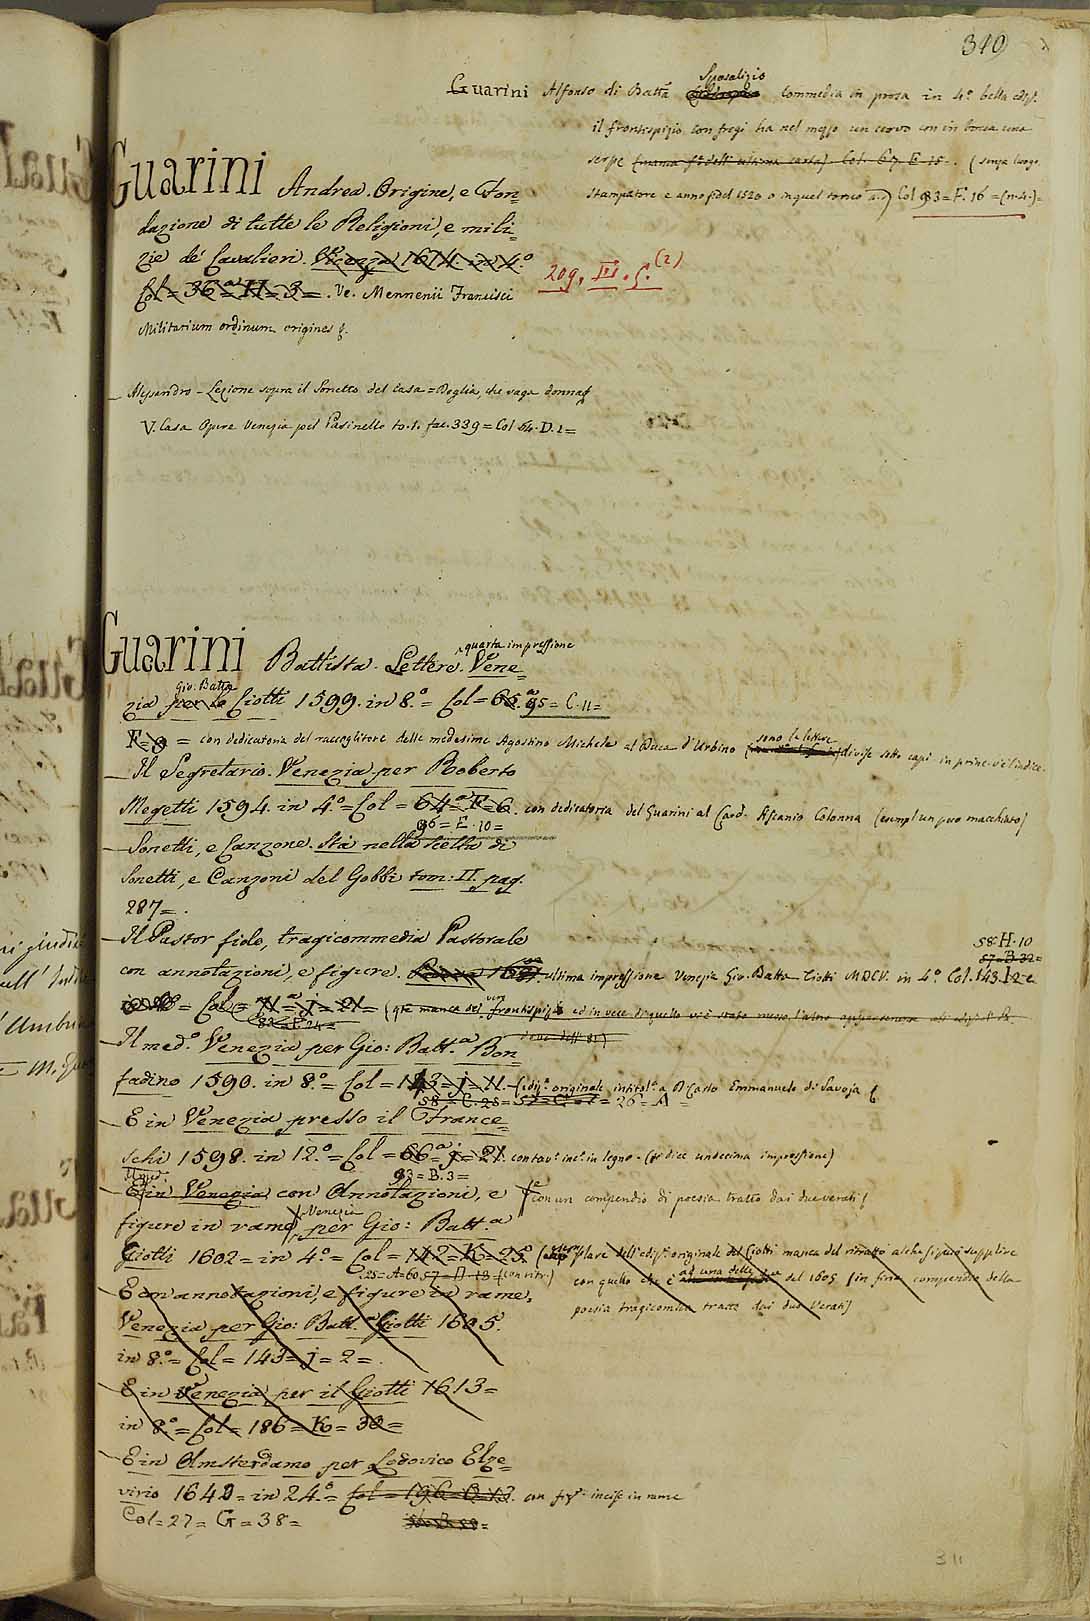 319
Sposalizio
Guarini Alfonso di Batta Commedia in prosa in 4.º bella ediz.
il frontespizio con fregi ha nel mezzo un cervo con in bocca una
serpe (manca fª dell' ultima carta) Col. 67. E 15. (senza luogo,
stampatore e anno Col 83 = F. 16 = (n. 4.) =
Guarini Andrea. Origine, e Fon=
dazione di tutte le Religioni, e mili=
zie de' Cavalieri. Vicenza 1614. in 4.º
Col = 36 = H = 3 = . Ve. Mennenii Francisci
209. III. ς. (2)
Militarium ordinum origines
Alessandro - Lezione sopra il Sonetto del Casa = Doglia, che vaga donna
V. Casa Opere Venezia pel Pasinello to. 1. fac. 339 = Col 64. D. 1 =
Guarini Battista. Lettere. Vene=
quarta impressione
zia per lo Ciotti 1599. in 8.º = Col = 65. 95 = C. 11 =
Gio. Batta
= con dedicatoria del raccoglitore delle medesime Agostino Michele al Duca d'Urbino (sono le lettere divise sotto capi in princ. v'è l'indice.
Il Segretario. Venezia per Roberto
Megetti 1594. in 4.º = Col = 64 = F = 6. con dedicatoria del Guarini al Card. Ascanio Colonna (esempl un poco macchiato)
96 = E. 10 =
Sonetti, e Canzone. Sta nella Scelta di
Sonetti, e Canzoni del Gobbi tom: II. pag.
287 = .
Il Pastor fido, tragicommedia Pastorale
58. H. 10
57. B. 32 =
con annotazioni, e figure. ultima impressione Venezia Gio. Batta Ciotti MDCV. in 4.º Col. 143. I 2 =
= Col = 71 = j = 21 = (manca del frontespizio ed in vece di quello
83 = F. 24 =
Il med.º Venezia per Gio: Batt.ª Bon
fadino 1590. in 8.º = Col = j = 11. ediz.e originale intitol.ª a D. Carlo Emmanuele di Savoja
58 = C. 28 = = 26 = A =
E in Venezia presso il France=
schi 1598. in 12.º = Col = 66 = j = 21. con tav.e inc.e in legno - (si dice undecima impressione)
93 = B. 3 =
Il med.
E in Venezia con Annotazioni, e con un compendio di poesia tratto dai due verati
figure in rame, Venezia per Gio: Batt.ª
Ciotti 1602 = in 4.º = Col = 142 = K = 25. (esemplare dell' ediz.e originale del Ciotti manca del ritratto al che si può supplire
25 = A = 60 57 = D. 18 = (con ritr.)
con quello che è ad una delle del 1605 (in fine compendio della
poesia tragicomica tratta dai due Verati)
E con annotazioni, e figure in rame,
Venezia per Gio: Batt.ª Ciotti 1605.
in 8.º = Col = 143 = j = 2 = .
E in Venezia per il Ciotti 1613 =
in 8.º = Col = 186 = K = 30 =
E in Amsterdamo per Lodovico Elze=
virio 1640 = in 24.º = Col = 196 = B 13. con fig.e incise in rame
Col = 27 = G = 38 =
311